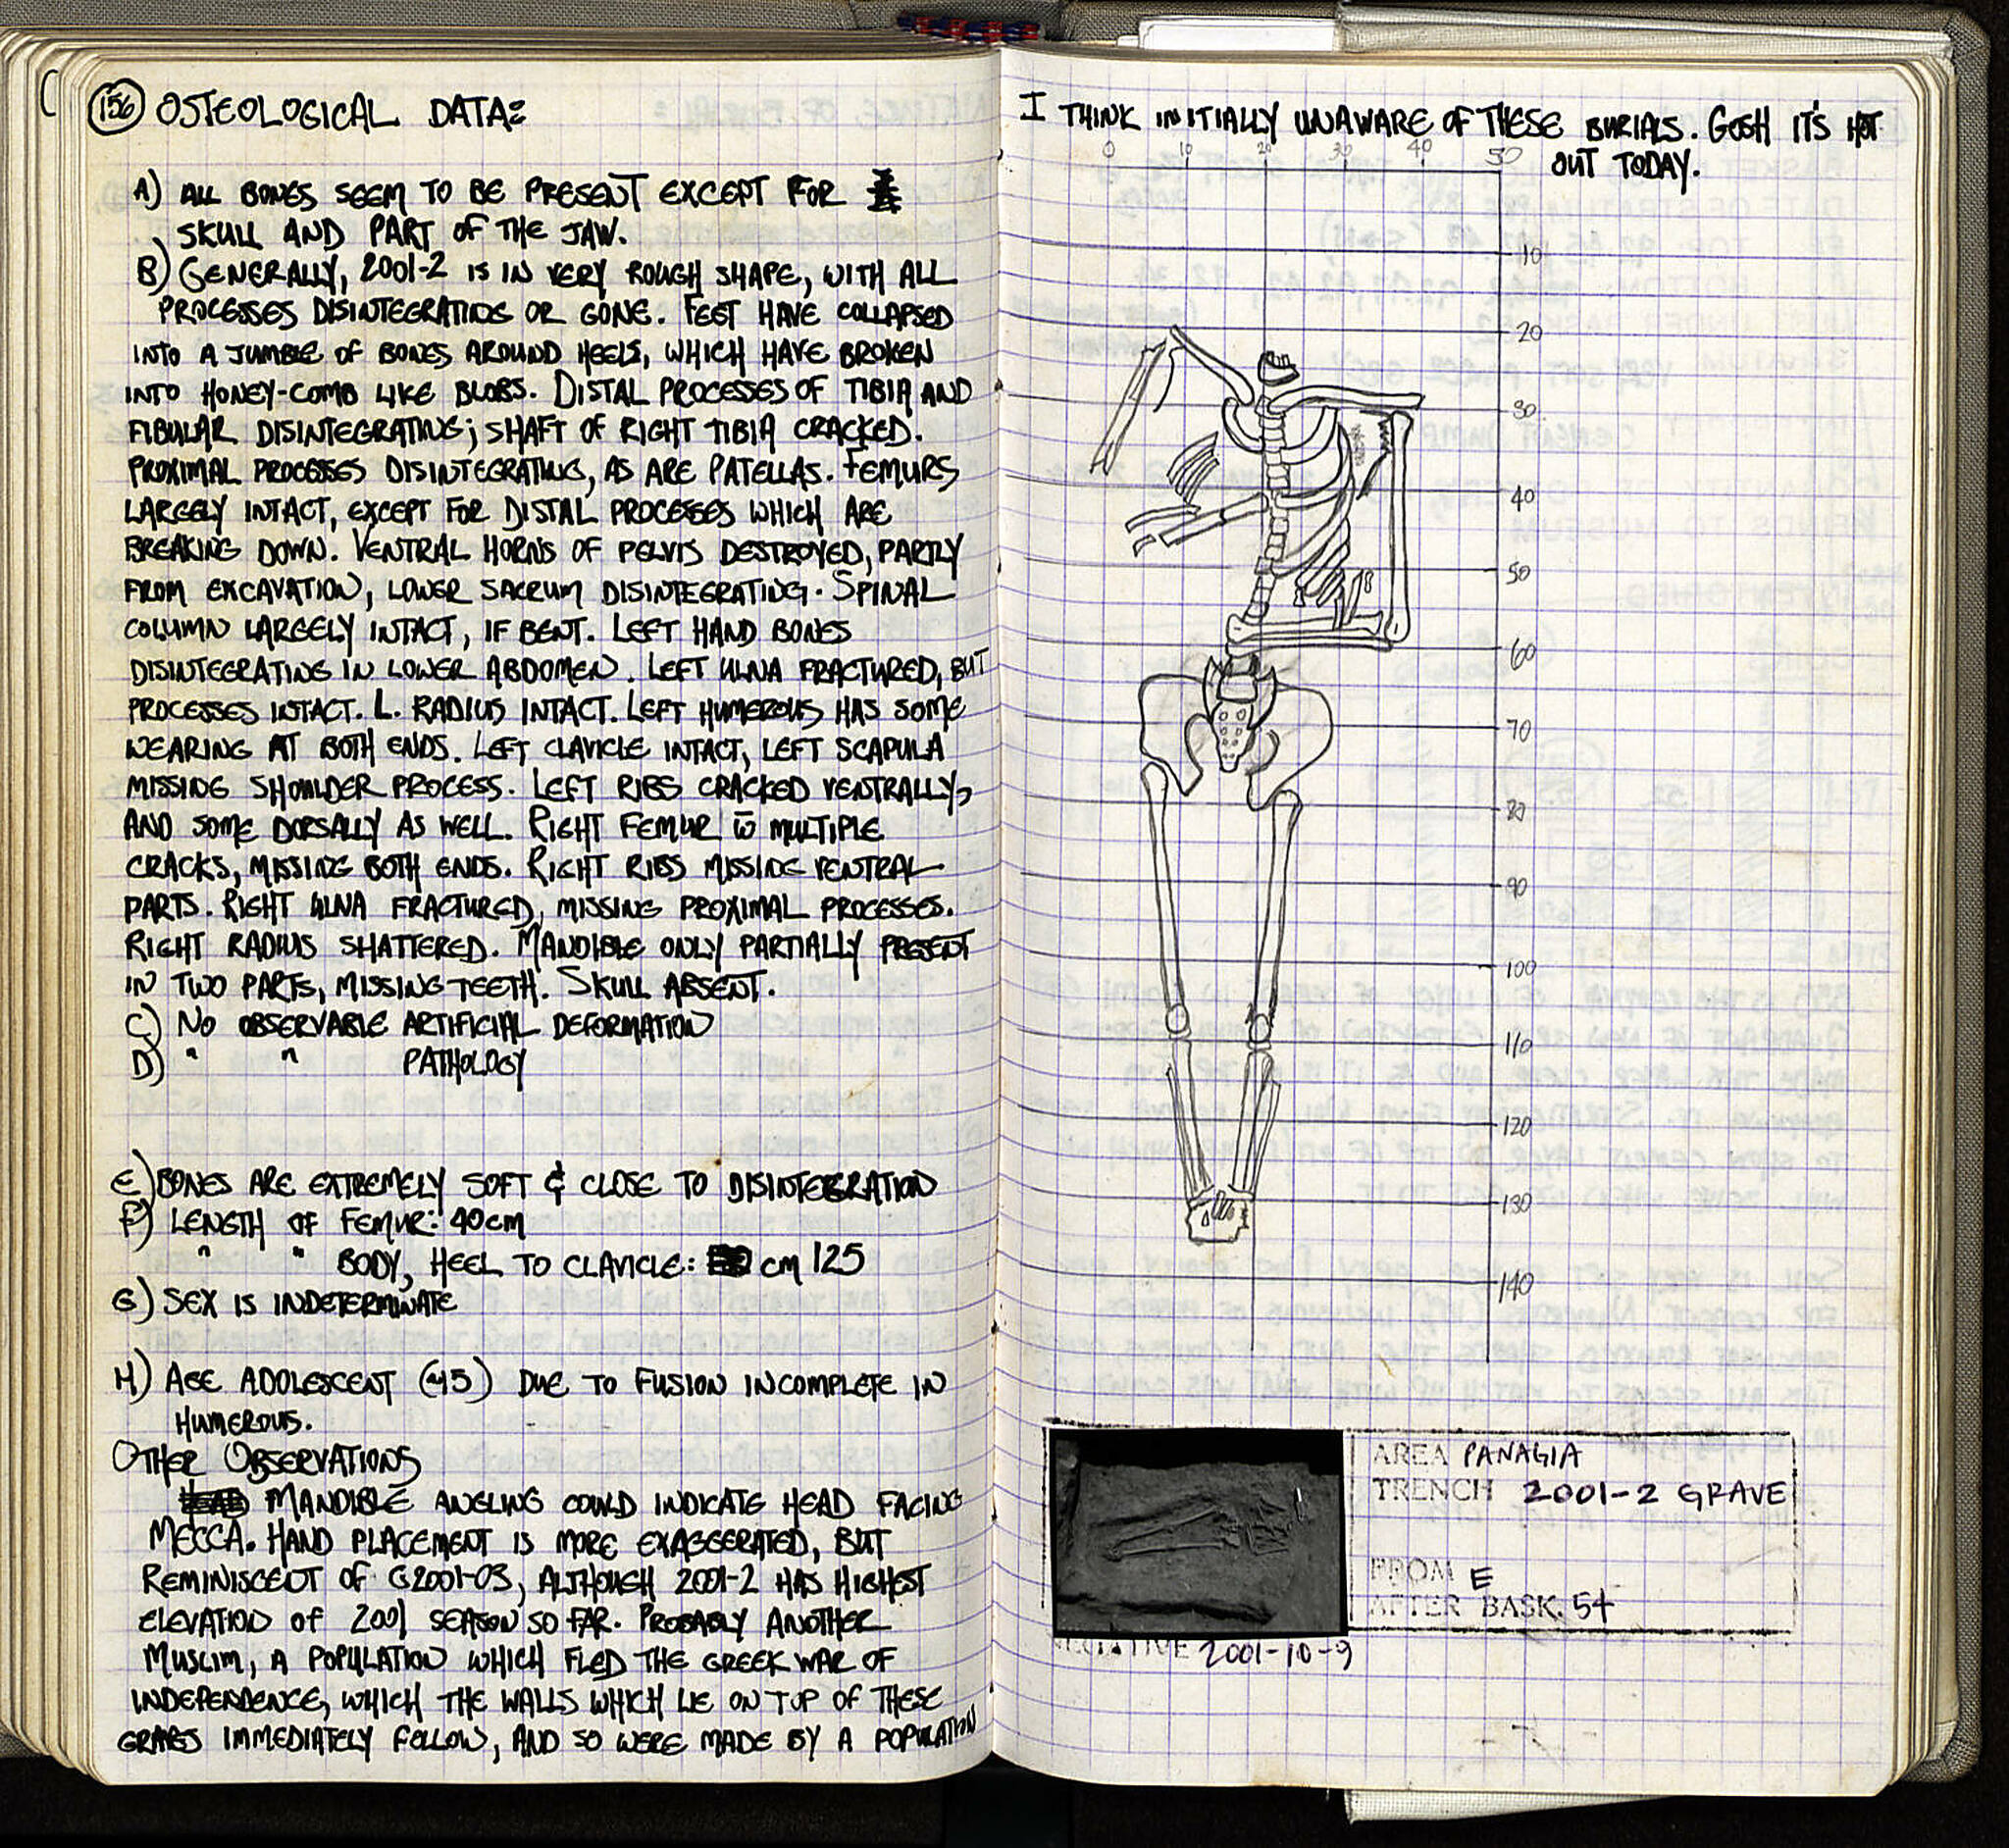 156 OSTEOLOGICAL DATA:
A) ALL BONES SEEM TO BE PRESENT EXCEPT FOR
SKULL AND PART OF THE JAW.
B) GENERALLY, 2001-2 IS IN VERY ROUGH SHAPE, WITH ALL
PROCESSES DISINTEGRATING OR GONE. FEET HAVE COLLAPSED
INTO A JUMBLE OF BONES AROUND HEELS, WHICH HAVE BROKEN
INTO HONEY-COMB LIKE BLOBS. DISTAL PROCESSES OF TIBIA AND
FIBULAR DISINTEGRATING; SHAFT OF RIGHT TIBIA CRACKED.
PROXIMAL PROCESSES DISINTEGRATING, AS ARE PATELLAS. FEMURS
LARGELY INTACT, EXCEPT FOR DISTAL PROCESSES WHICH ARE
BREAKING DOWN. VENTRAL HORNS OF PELVIS DESTROYED, PARTLY
FROM EXCAVATION, LOWER SACRUM DISINTEGRATING. SPINAL
COLUMN LARGELY INTACT, IF BENT. LEFT HAND BONES
DISINTEGRATING IN LOWER ABDOMEN. LEFT ULNA FRACTURED, BUT
PROCESSES INTACT. L. RADIUS INTACT. LEFT HUMEROUS HAS SOME
WEARING AT BOTH ENDS. LEFT CLAVICLE INTACT, LEFT SCAPULA
MISSING SHOULDER PROCESS. LEFT RIBS CRACKED VENTRALLY,
AND SOME DORSALLY AS WELL. RIGHT FEMUR W̄ MULTIPLE
CRACKS, MISSING BOTH ENDS. RIGHT RIBS MISSING VENTRAL
PARTS. RIGHT ULNA FRACTURED, MISSING PROXIMAL PROCESSES.
RIGHT RADIUS SHATTERED. MANDIBLE ONLY PARTIALLY PRESENT
IN TWO PARTS, MISSING TEETH. SKULL ABSENT.
C) NO OBSERVABLE ARTIFICIAL DEFORMATION
D) " " PATHOLOGY
E) BONES ARE EXTREMELY SOFT & CLOSE TO DISINTEGRATION
F) LENGTH OF FEMUR: 40cm
" " BODY, HEEL TO CLAVICLE: cm 125
G) SEX IS INDETERMINATE
H) AGE ADOLESCENT (~15) DUE TO FUSION INCOMPLETE IN
HUMEROUS.
OTHER OBSERVATIONS
MANDIBLE ANGLING COULD INDICATE HEAD FACING
MECCA. HAND PLACEMENT IS MORE EXAGGERATED, BUT
REMINISCENT OF G2001-03, ALTHOUGH 2001-2 HAS HIGHEST
ELEVATION OF 2001 SEASON SO FAR. PROBABLY ANOTHER
MUSLIM, A POPULATION WHICH FLED THE GREEK WAR OF
INDEPENDENCE, WHICH THE WALLS WHICH LIE ON TOP OF THESE
GRAVES IMMEDIATELY FOLLOW, AND SO WERE MADE BY A POPULATION
I THINK INITIALLY UNAWARE OF THESE BURIALS. GOSH IT'S HOT
OUT TODAY.
0 10 20 30 40 50
10
20
30
40
50
60
70
80
90
100
110
120
130
140
AREA PANAGIA
TRENCH 2001-2 GRAVE
FROM E
AFTER BASK. 54
NEGATIVE 2001-10-9